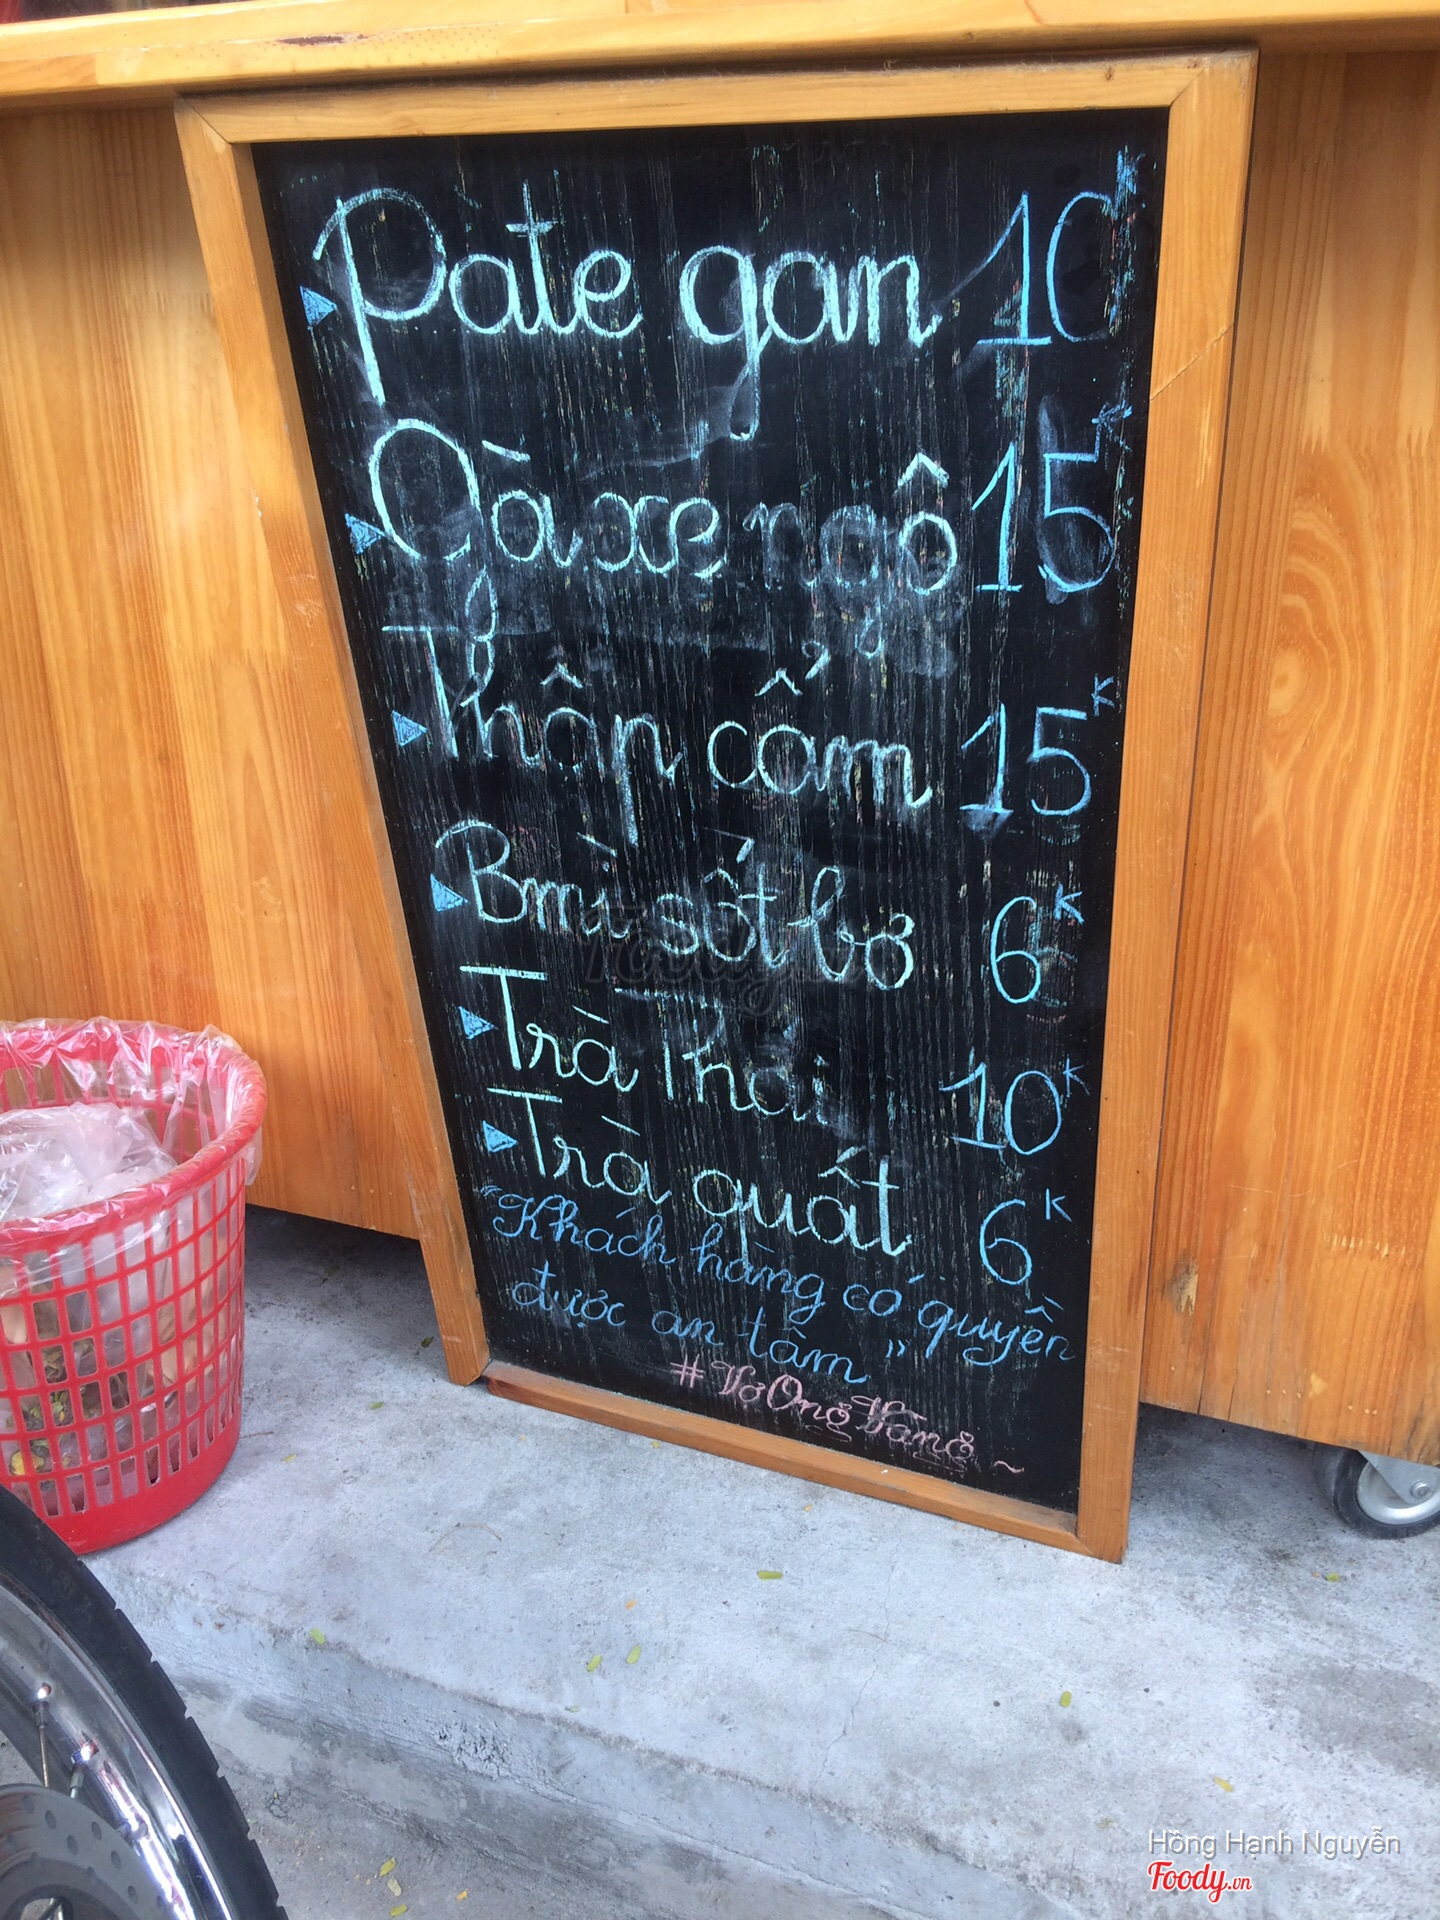 Pate gan 10K
Gà xẹ ngô 15K
Thập cẩm 15K
Bmì sốt bơ 6K
Trà Thái 10K
Trà quất 6K
"Khách hàng có quyền
được an tâm"
#VợOngVàng~
Foody.vn
Hồng Hạnh Nguyễn
Foody.vn